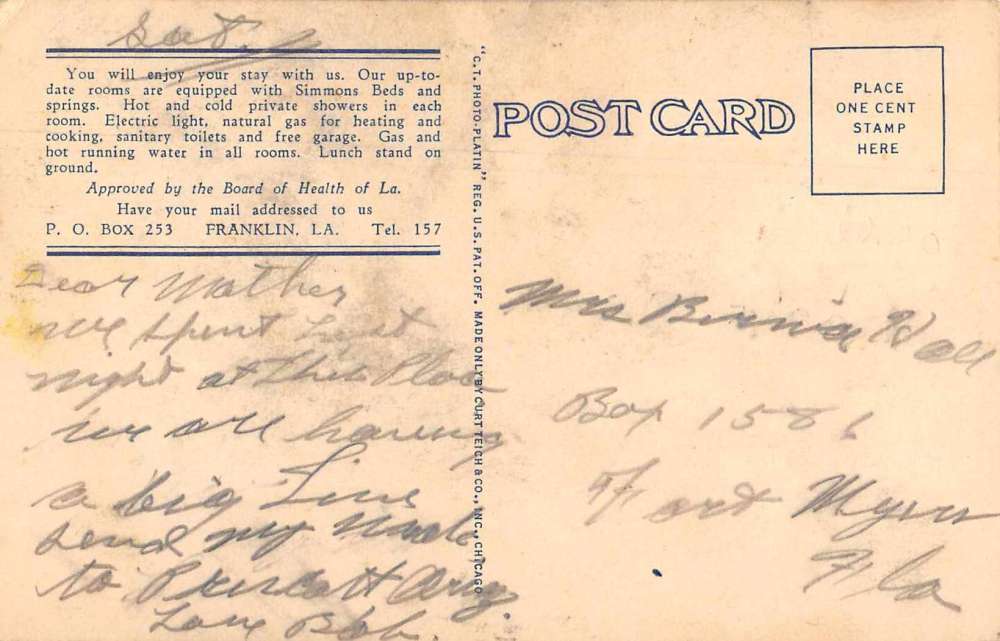 Sat.
You will enjoy your stay with us. Our up-to-
date rooms are equipped with Simmons Beds and
springs. Hot and cold private showers in each
room. Electric light, natural gas for heating and
cooking, sanitary toilets and free garage. Gas and
hot running water in all rooms. Lunch stand on
ground.
Approved by the Board of Health of La.
Have your mail addressed to us
P. O. BOX 253 FRANKLIN, LA. Tel. 157
Dear Mother
we spent Last
night at this Place
we are having
a big Time
send my
to Prescott
Love Bob.
"C.T. PHOTO-PLATIN" REG. U.S. PAT. OFF. MADE ONLY BY CURT TEICH & CO., INC., CHICAGO
POST CARD
PLACE
ONE CENT
STAMP
HERE
Mrs
Box 1586
Fort Myers
Fla